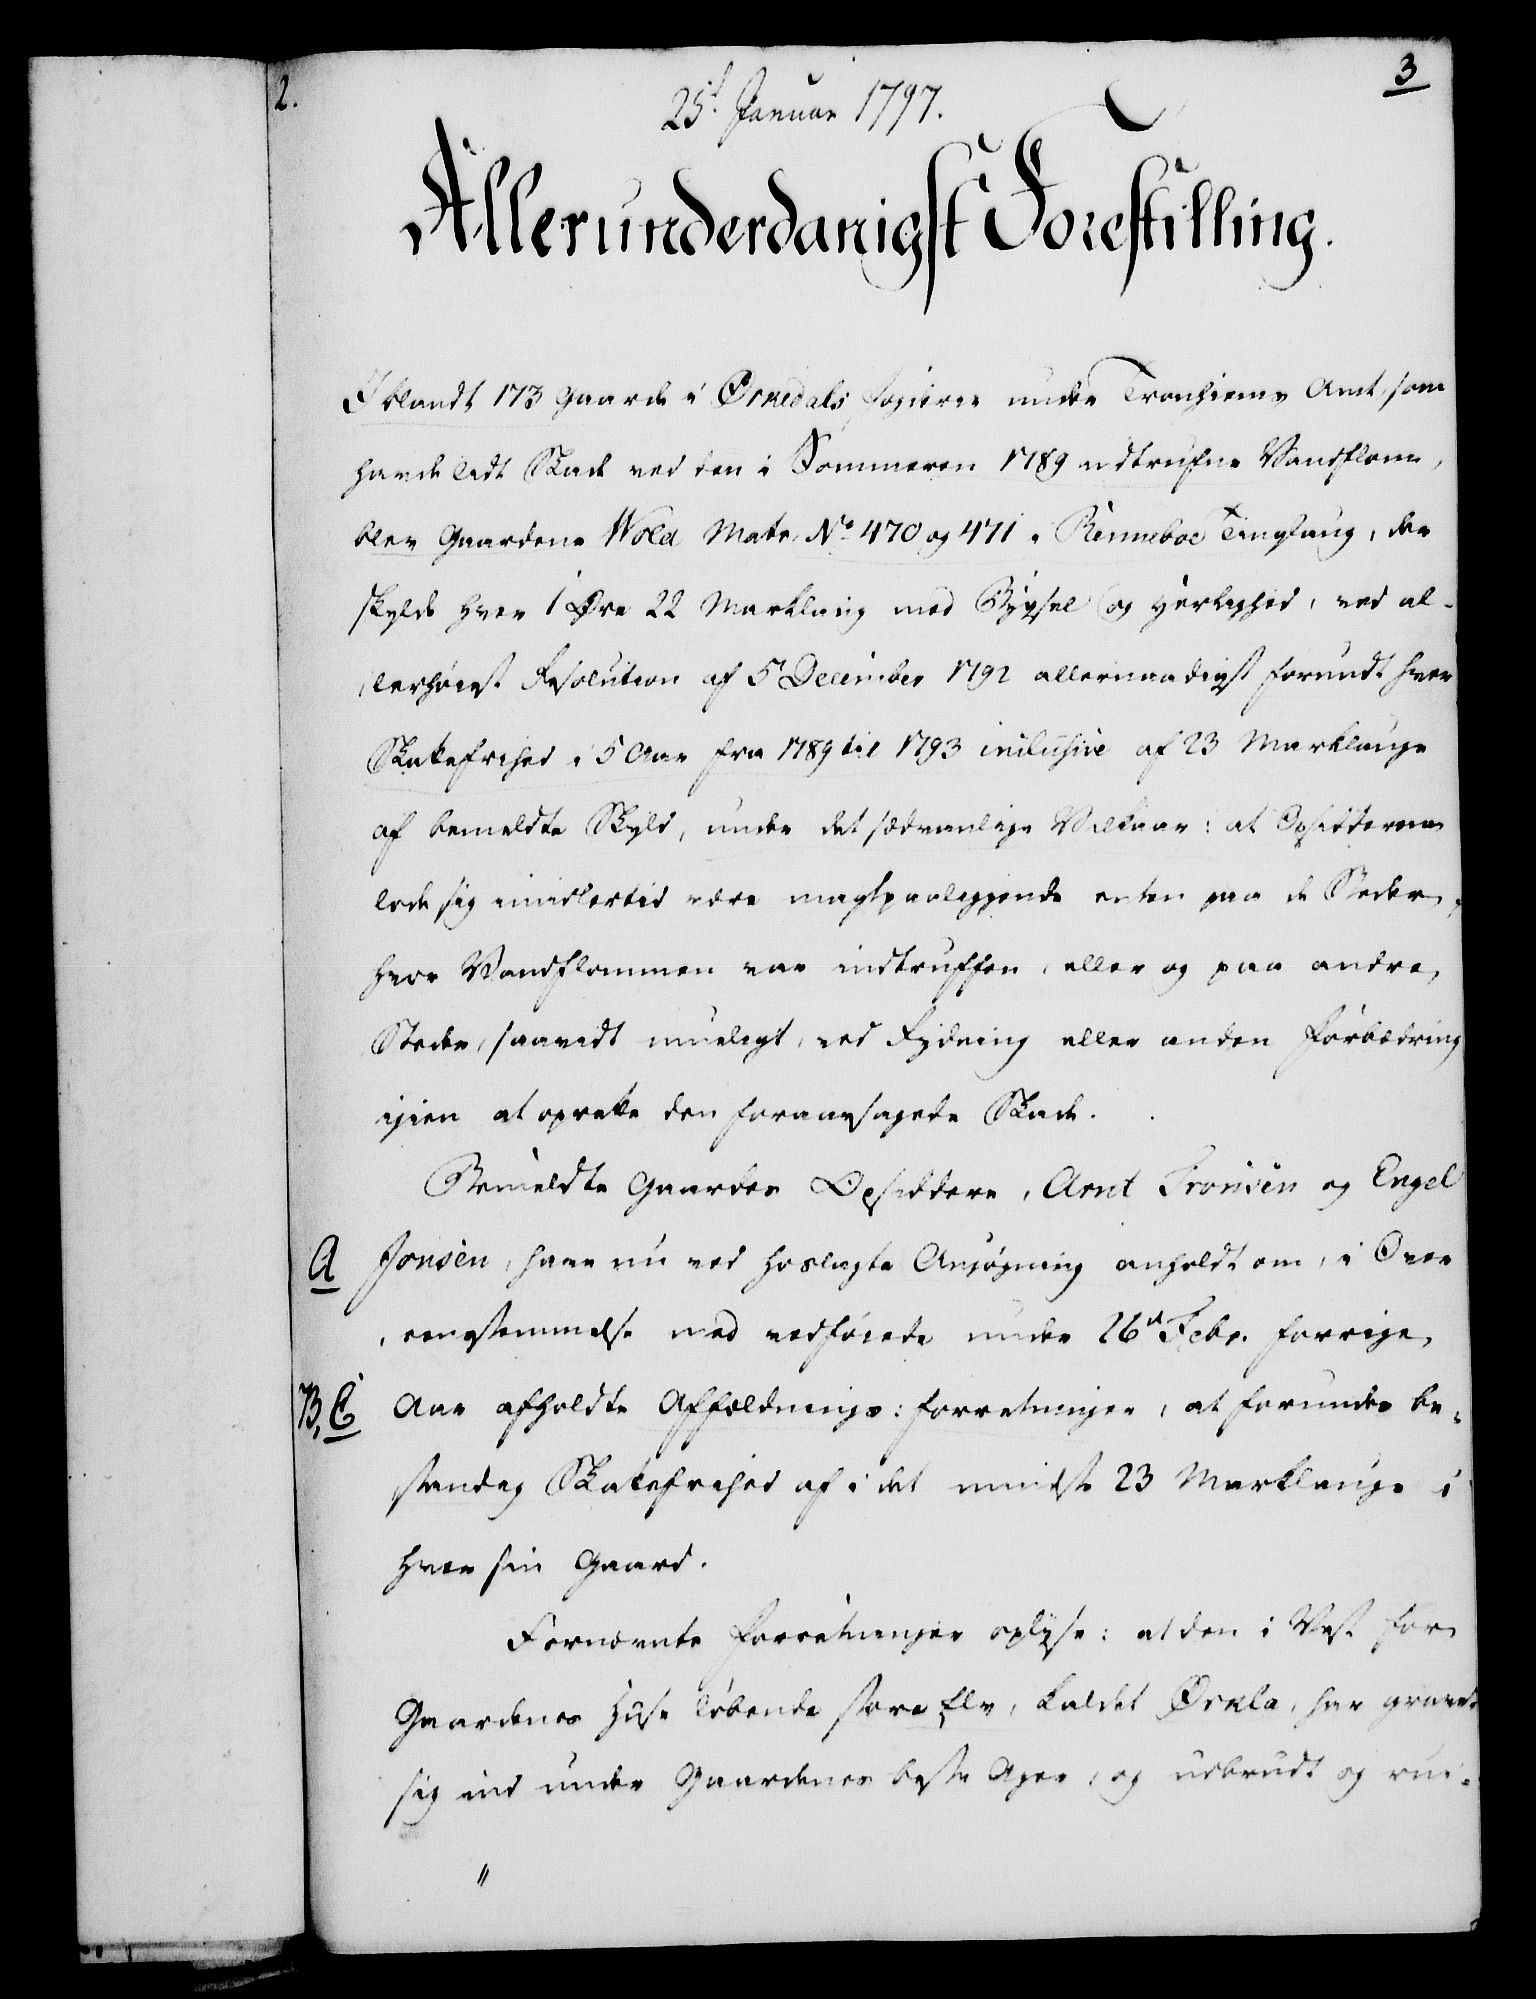 2.
3
25d Januar 1797.
Allerunderdanigst Forestilling.
Iblandt 173 Gaarde i Ørkedals Fogderie under Tronhiems Amt, som
havde lidt Skade ved den i Sommeren 1789 indtrufne Vandflom,
blev Gaardene Wold Matr. No 470 og 471 i Renneboe Tinglaug, der
skylde hver 1 Øre 22 Marklaug med Bÿxel og Herlighed, ved al-
lerhøiest Resolution af 5 December 1792 allernaadigst forundt hver
Skattefrihed i 5 Aar fra 1789 til 1793 inclusive af 23 Marklauge
af bemeldte Skyld, under det sædvanlige Vilkaar: at Opsidderne
lode sig imidlertid være magtpaaliggende enten paa de Steder,
hvor Vandflommen var indtruffen, eller og paa andre
Steder, saavidt mueligt, ved Rydning eller anden Forbedring
igien at oprette den foraarsagede Skade.
Bemeldte Gaardes Opsiddere, Arnt Tronsen og Engel
A Jonsen, have nu ved hoslagte Ansøgning anholdt om, i Over
eensstemmelse med vedføiede under 26d Febr. forrige
B, C Aar afholdte Affældnings-Forretninger, at forundes be-
standig Skattefrihed af i det mindste 23 Marklauge i
hver sin Gaard.
Fornævnte Forretninger oplyse: at den i Vest for
Gaardenes Huse løbende store Elv, kaldet Ørkla, har gravet
sig ind under Gaardenes beste Ager, og udbrudt og rui-
"